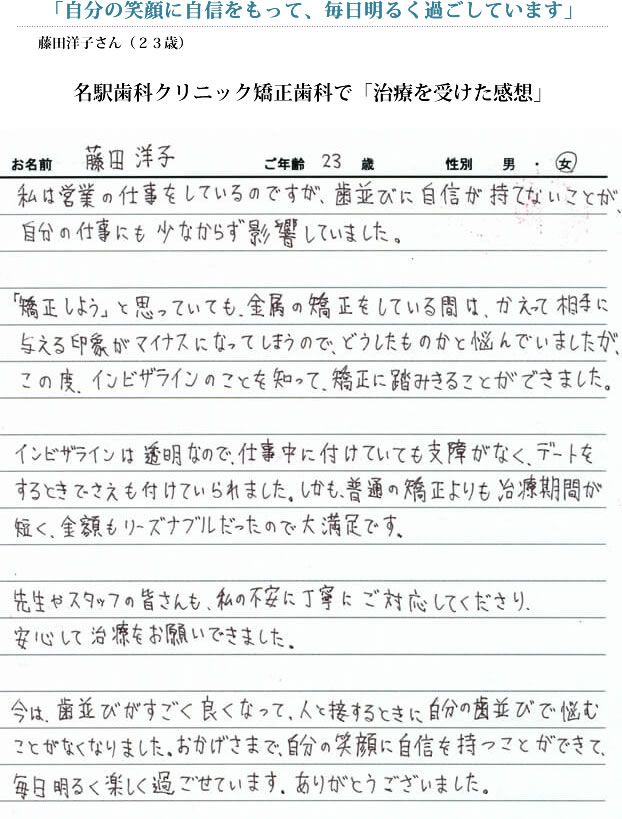 「自分の笑顔に自信をもって、毎日明るく過ごしています」
藤田洋子さん（２３歳）
名駅歯科クリニック矯正歯科で「治療を受けた感想」
お名前 藤田 洋子 ご年齢 23 歳 性別 男 ・ 女
私は営業の仕事をしているのですが、歯並びに自信が持てないことが、
自分の仕事にも少なからず影響していました。
「矯正しよう」と思っていても、金属の矯正をしている間は、かえって相手に
与える印象がマイナスになってしまうので、どうしたものかと悩んでいましたが、
この度、インビザラインのことを知って、矯正に踏みきることができました。
インビザラインは透明なので、仕事中に付けていても支障がなく、デートを
するときでさえも付けていられました。しかも、普通の矯正よりも治療期間が
短く、金額もリーズナブルだったので大満足です。
先生やスタッフの皆さんも、私の不安に丁寧にご対応してくださり、
安心して治療をお願いできました。
今は、歯並びがすごく良くなって、人と接するときに自分の歯並びで悩む
ことがなくなりました。おかげさまで、自分の笑顔に自信を持つことができて、
毎日明るく楽しく過ごせています。ありがとうございました。